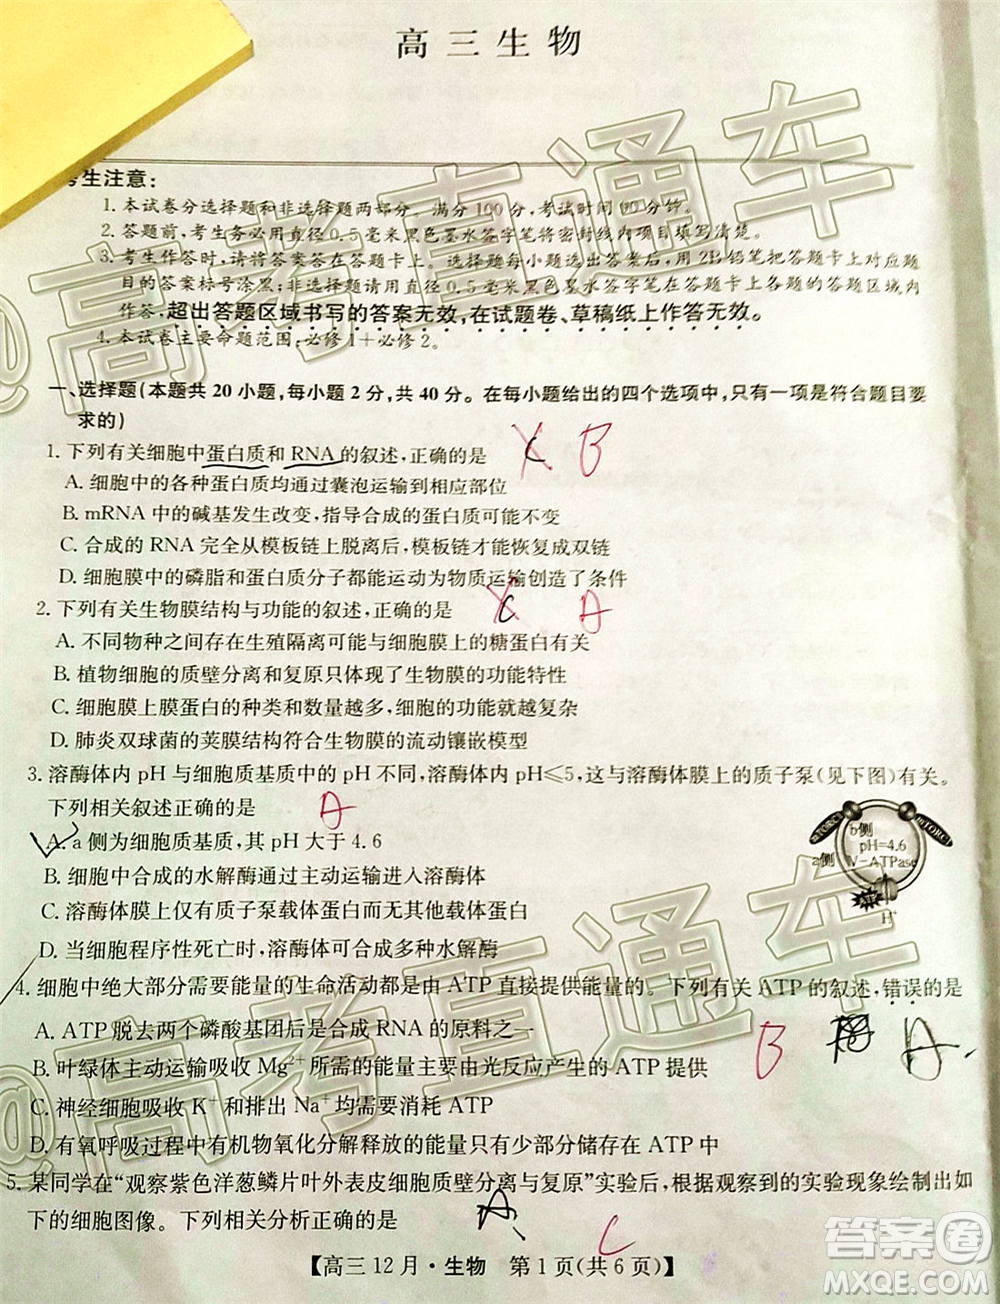 高三生物
考生注意:
1. 本试卷分选择题和非选择题两部分。满分 100 分，考试时间 90 分钟。
2. 答题前，考生务必用直径 0.5 毫米黑色墨水签字笔将密封线内项目填写清楚。
3. 考生作答时，请将答案答在答题卡上。选择题每小题选出答案后，用 2B 铅笔把答题卡上对应题
目的答案标号涂黑；非选择题请用直径 0.5 毫米黑色墨水签字笔在答题卡上各题的答题区域内
作答，超出答题区域书写的答案无效，在试题卷、草稿纸上作答无效。
4. 本试卷主要命题范围：必修 1+必修 2。
一、选择题(本题共 20 小题，每小题 2 分，共 40 分。在每小题给出的四个选项中，只有一项是符合题目要
求的)
1. 下列有关细胞中蛋白质和 RNA 的叙述，正确的是 C B
A. 细胞中的各种蛋白质均通过囊泡运输到相应部位
B. mRNA 中的碱基发生改变，指导合成的蛋白质可能不变
C. 合成的 RNA 完全从模板链上脱离后，模板链才能恢复成双链
D. 细胞中的磷脂和蛋白质分子都能运动为物质运输创造了条件
2. 下列有关生物膜结构与功能的叙述，正确的是 C A
A. 不同物种之间存在生殖隔离可能与细胞膜上的糖蛋白有关
B. 植物细胞的质壁分离和复原只体现了生物膜的功能特性
C. 细胞膜上膜蛋白的种类和数量越多，细胞的功能就越复杂
D. 肺炎双球菌的荚膜结构符合生物膜的流动镶嵌模型
3. 溶酶体内 pH 与细胞质基质中的 pH 不同，溶酶体内 pH≤5，这与溶酶体膜上的质子泵(见下图)有关。
下列相关叙述正确的是 A
A. a 侧为细胞质基质，其 pH 大于 4.6
B. 细胞中合成的水解酶通过主动运输进入溶酶体
C. 溶酶体膜上仅有质子泵载体蛋白而无其他载体蛋白
D. 当细胞程序性死亡时，溶酶体可形成多种水解酶
b侧
pH=4.6
a侧 V-ATPase
mTORC1
H⁺
4. 细胞中绝大部分需要能量的生命活动都是由 ATP 直接提供能量的。下列有关 ATP 的叙述，错误的是
A. ATP 脱去两个磷酸基团后是合成 RNA 的原料之一
B A
B. 叶绿体主动运输吸收 Mg²⁺所需的能量主要由光反应产生的 ATP 提供
C. 神经细胞吸收 K⁺和排出 Na⁺均需要消耗 ATP
D. 有氧呼吸过程中有机物氧化分解释放的能量只有少部分储存在 ATP 中
5. 某同学在“观察紫色洋葱鳞片叶外表皮细胞质壁分离与复原”实验后，根据观察到的实验现象绘制出如
下的细胞图像。下列相关分析正确的是 A C
【高三 12 月·生物 第 1 页(共 6 页)】
@高考直通车
@高考直通车
答案卷
MXQE.COM